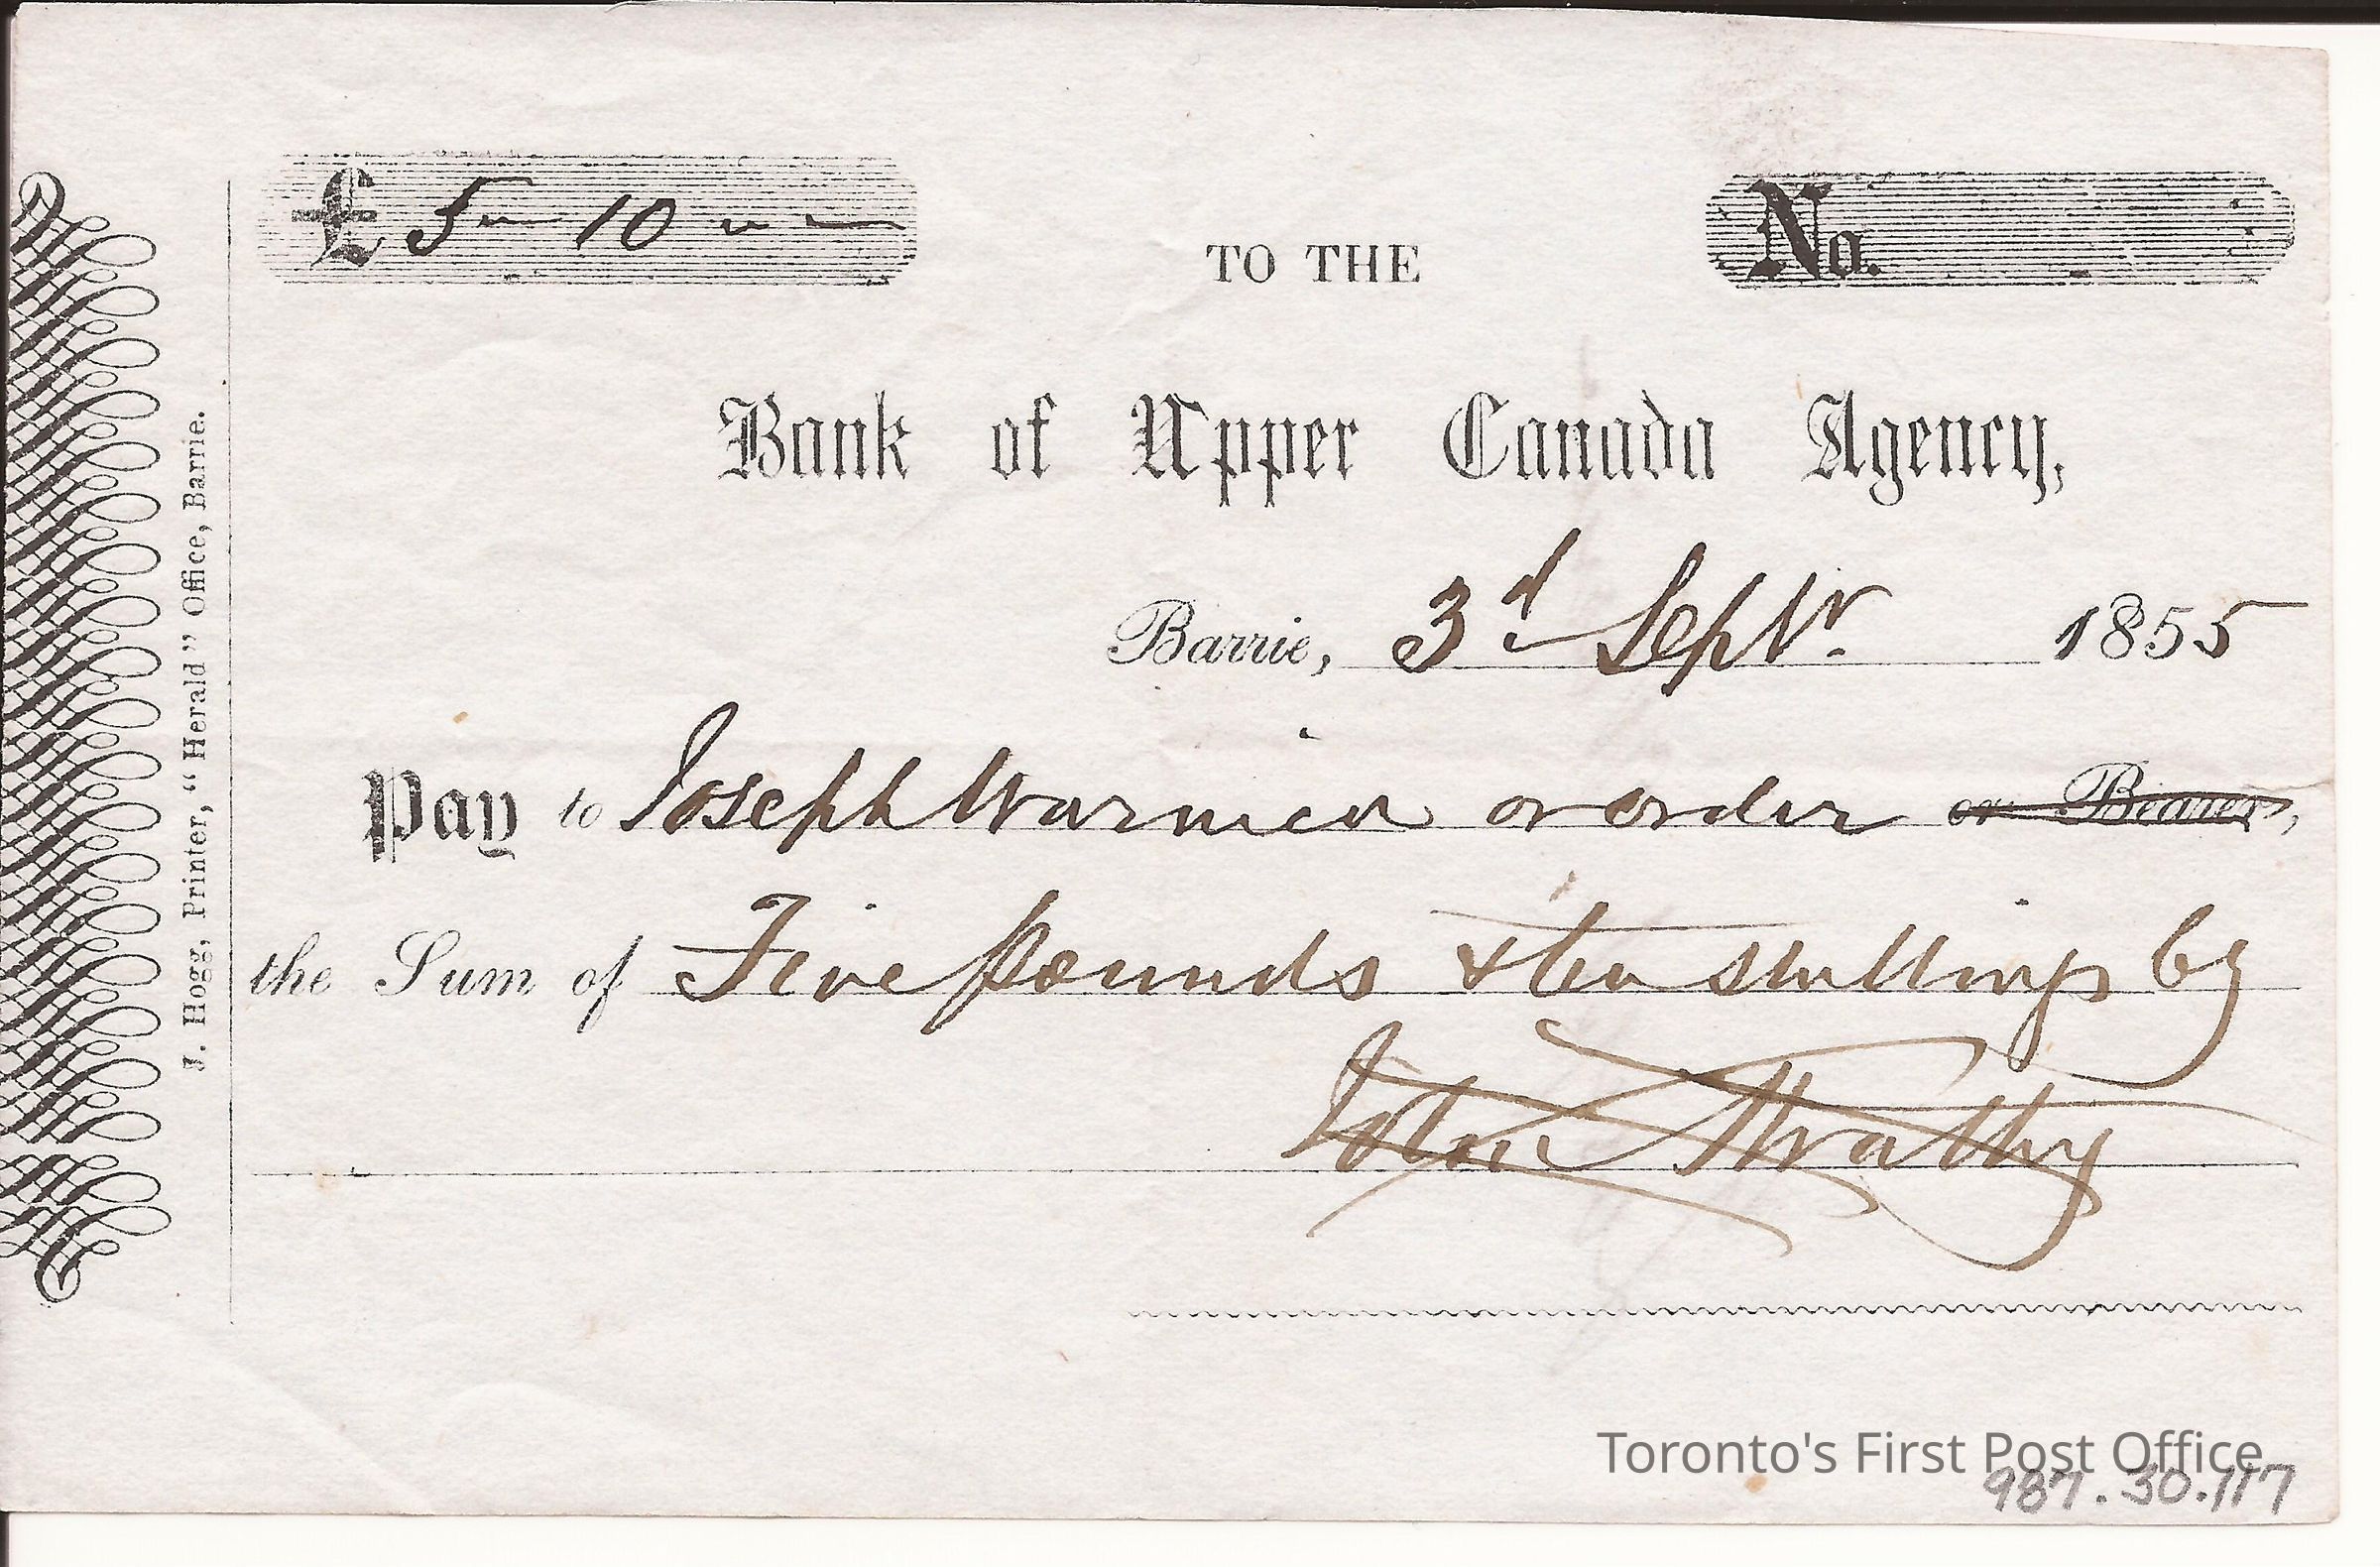 £ 5 " 10 " "
TO THE
No.
Bank of Upper Canada Agency,
Barrie, 3d Septr. 1855
Pay to Joseph or order or Bearer,
the Sum of Five pounds & ten shillings by
John Strathy
J. Hogg, Printer, "Herald" Office, Barrie.
Toronto's First Post Office
987.30.117